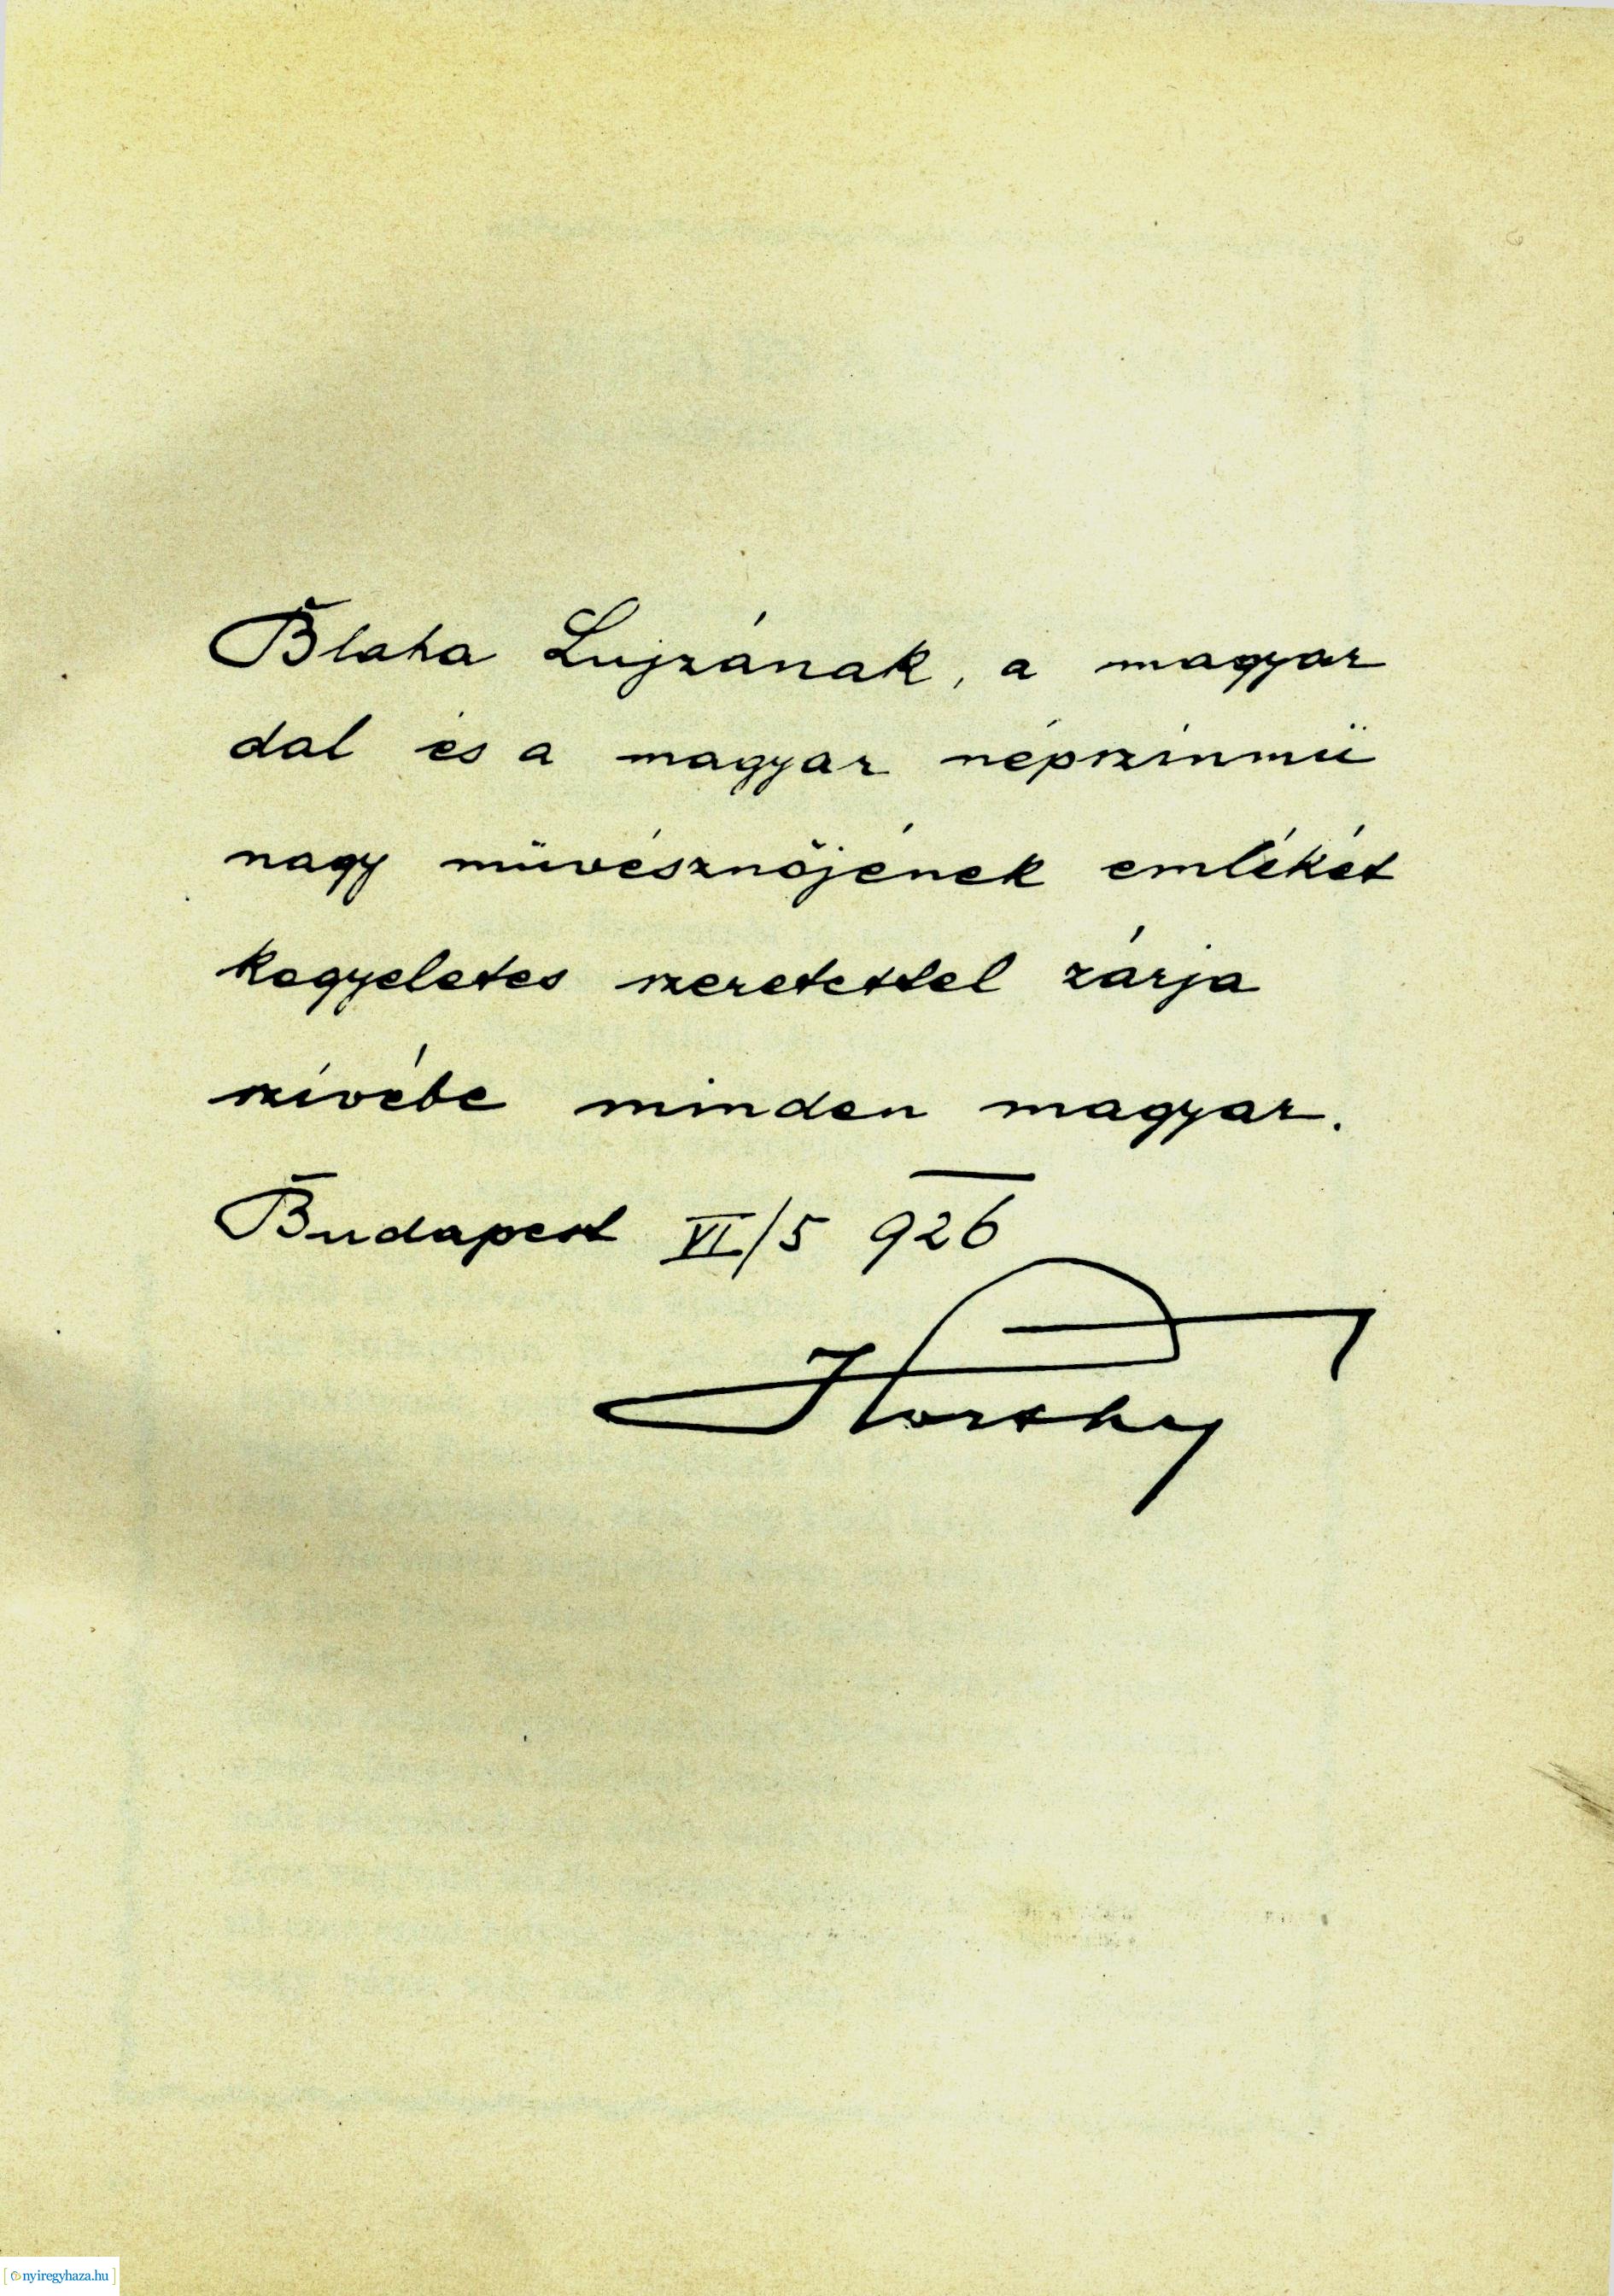 Blaha Lujzának, a magyar
dal és a magyar népszinmü
nagy müvésznőjének emlékét
kegyeletes szeretettel zárja
szívébe minden magyar.
Budapest VI/5 926
Horthy
[nyiregyhaza.hu]